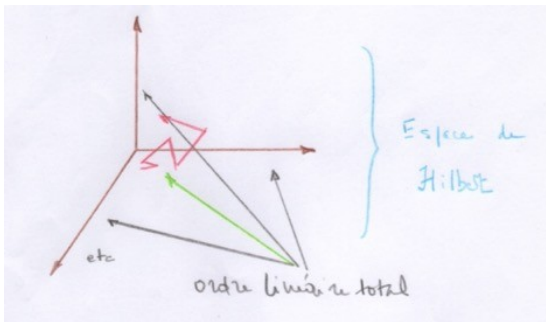 Espace de
Hilbert
etc
ordre linéaire total